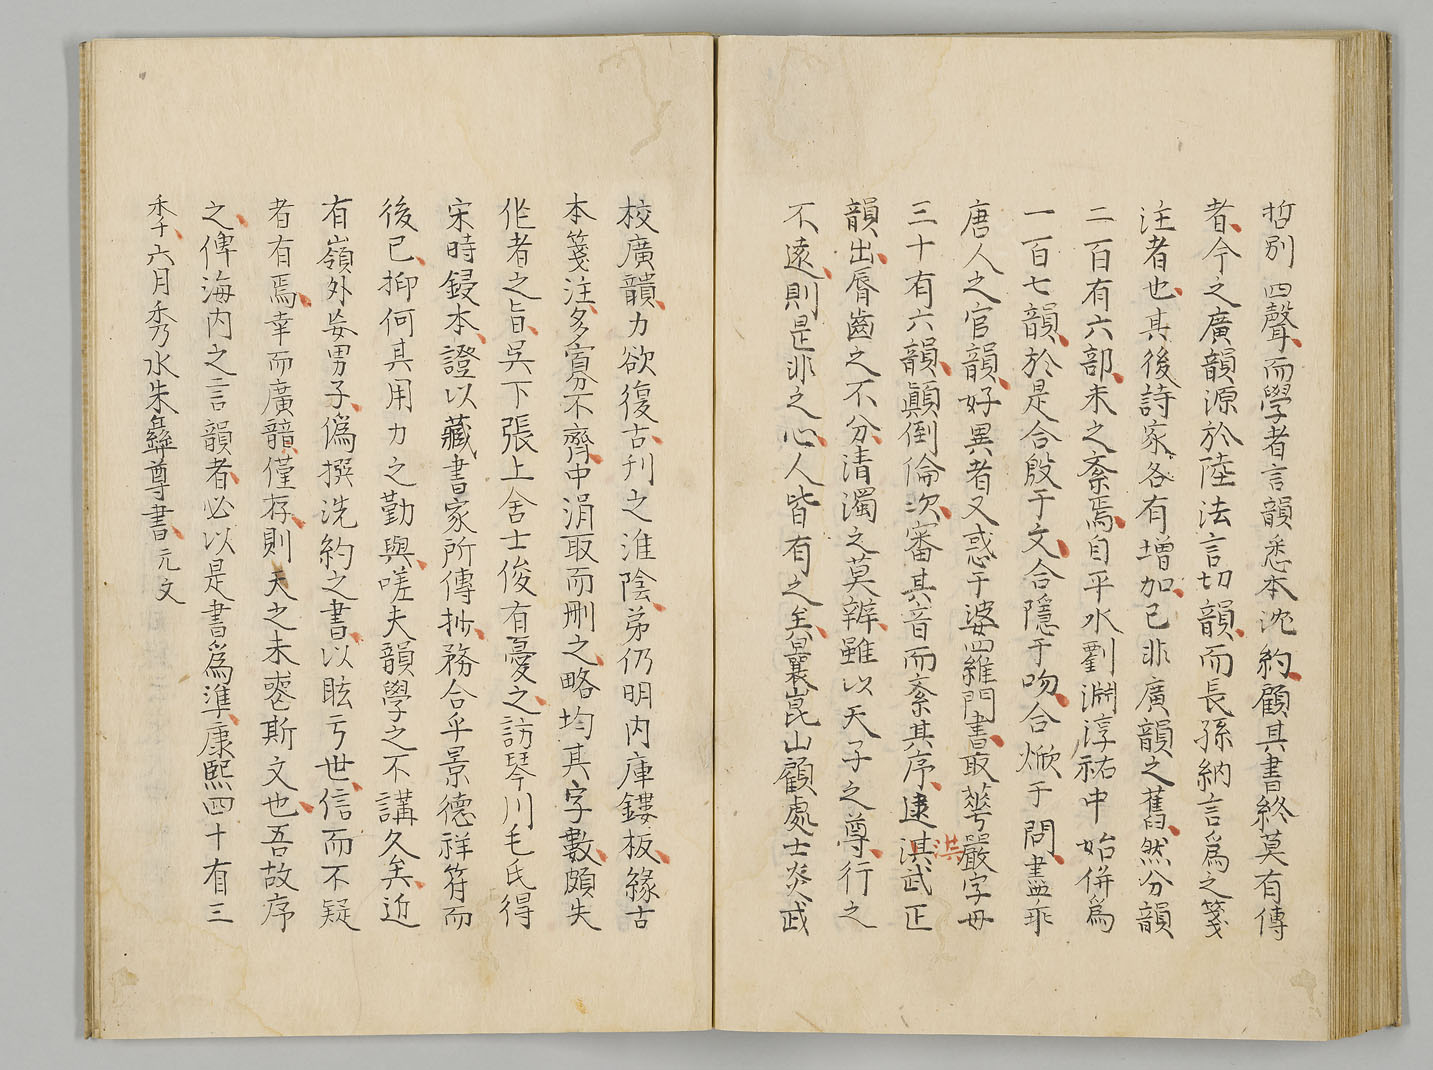 哲別四聲而學者言韻悉本沈約顧其書終莫有傳
者今之廣韻源於陸法言切韻而長孫納言為之箋
注者也其後詩家各有增加已非廣韻之舊然分韻
二百有六部未之紊焉自平水劉淵淳祐中始併為
一百七韻於是合殷于文合隱于吻合焮于問盡乖
唐人之官韻好異者又惑于婆羅門書取華嚴字母
三十有六韻顛倒倫次審其音而紊其序逮淇武正
洪
韻出脣齒之不分清濁之莫辨雖以天子之尊行之
不遠則是非之心人皆有之矣曩崑山顧處士炎武
校廣韻力欲復古刋之淮陰苐仍明内庫鏤板緣古
本箋注多寡不齊中涓取而刪之略均其字數頗失
作者之旨吳下張上舍士俊有憂之訪琴川毛氏得
宋時鋟本證以藏書家所傳抄務合乎景德祥符而
後已抑何其用力之勤與嗟夫韻學之不講久矣近
有嶺外妄男子偽撰沈約之書以眩于世信而不疑
者有焉幸而廣韻僅存則天之未喪斯文也吾故序
之俾海内之言韻者必以是書為準康熙四十有三
年六月秀水朱彝尊書 元文